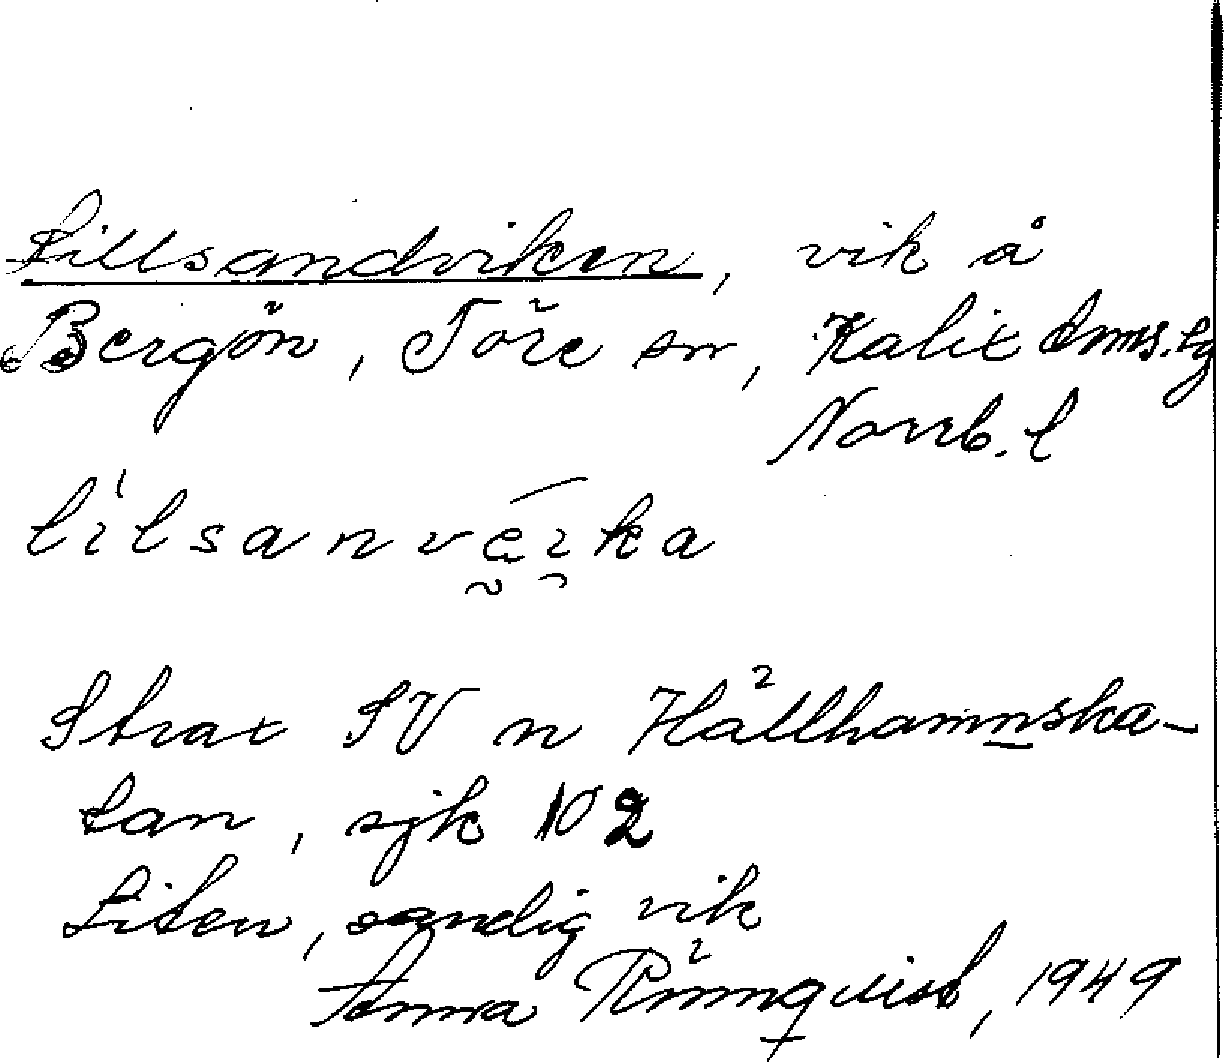 Lillsandviken, vik å
Bergön, Töre sn, Kalix dms. lg
Norrb. l
lilsanveika
Strax SV n Hällhamnska-
tan, sjk 102
Liten, sandig vik
Anna Rönnqvist, 1949